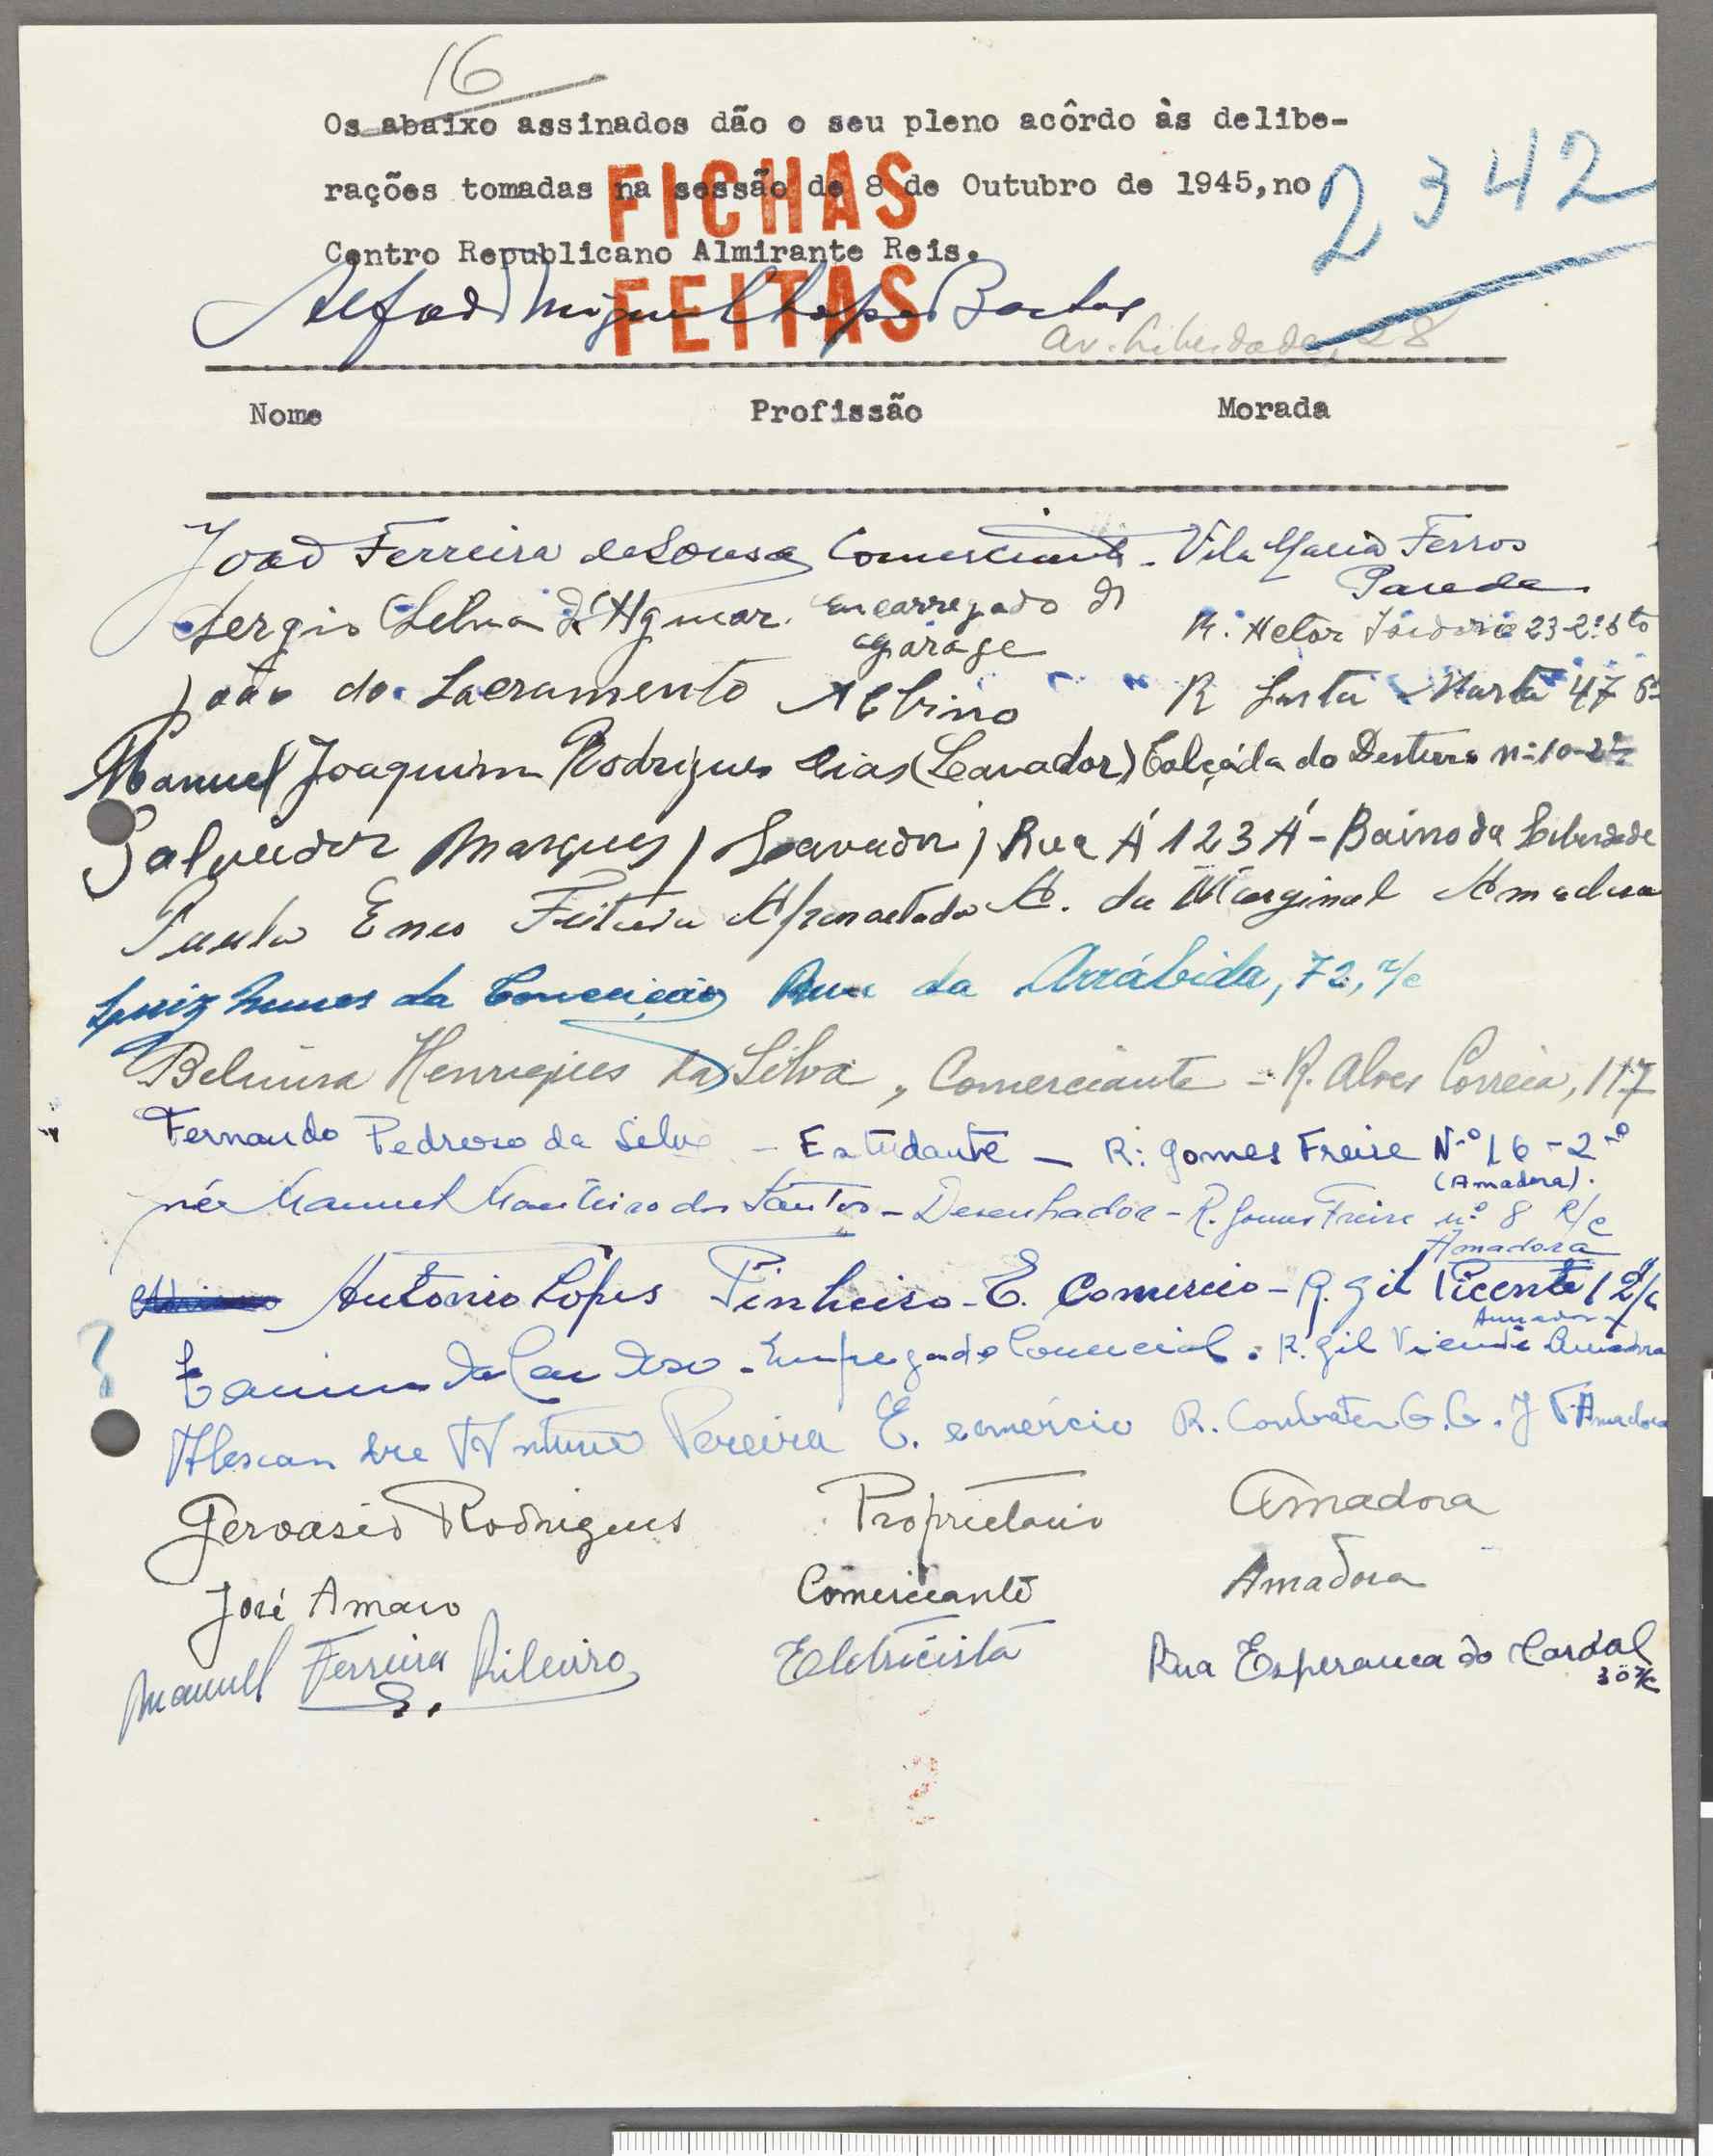 16
Os abaixo assinados dão o seu pleno acôrdo às delibe-
rações tomadas na sessão de 8 de Outubro de 1945, no
2342
FICHAS
Centro Republicano Almirante Reis.
FEITAS
Miguel Bastos
Av. Liberdade, 28
Nome Profissão Morada
João Ferreira de Sousa Comerciante - Vila Maria Ferros
Parede
Sergio Selva d'Aguiar. Encarregado de
garage
R. Heitor 23-2º
João do Sacramento Albino R Santa Marta 47
Manuel Joaquim Rodrigues Dias (Lavador) Calçada do Desterro nº 10-2º
Salvador Marques (Lavador) Rua Á 123 Á - Bairro da Liberdade
Paulo Enes Aposentado Av. da Marginal Amadora
Luiz Nunes da Conceição Rua da Arrábida, 72, r/c
Belmira Henriques da Silva, Comerciante - R. Alves Correia, 117
Fernando Pedroso da Silva - Estudante - R: Gomes Freire Nº 16 - 2º
(Amadora).
Manuel Monteiro dos Santos - Desenhador - R. Gomes Freire nº 8 R/c
Amadora
Antonio Lopes Pinheiro - E. Comercio - R. Gil Vicente
Amadora
? Cardoso - Empregado Comercial. R. Gil Vicente Amadora
Alexandre Antunes Pereira E. comércio R. Combaten G.G. Amadora
Gervasio Rodrigues Proprietario Amadora
José Amaro Comerciante Amadora
Manuel Ferreira Ribeiro Eletricista Rua Esperança do Cardal